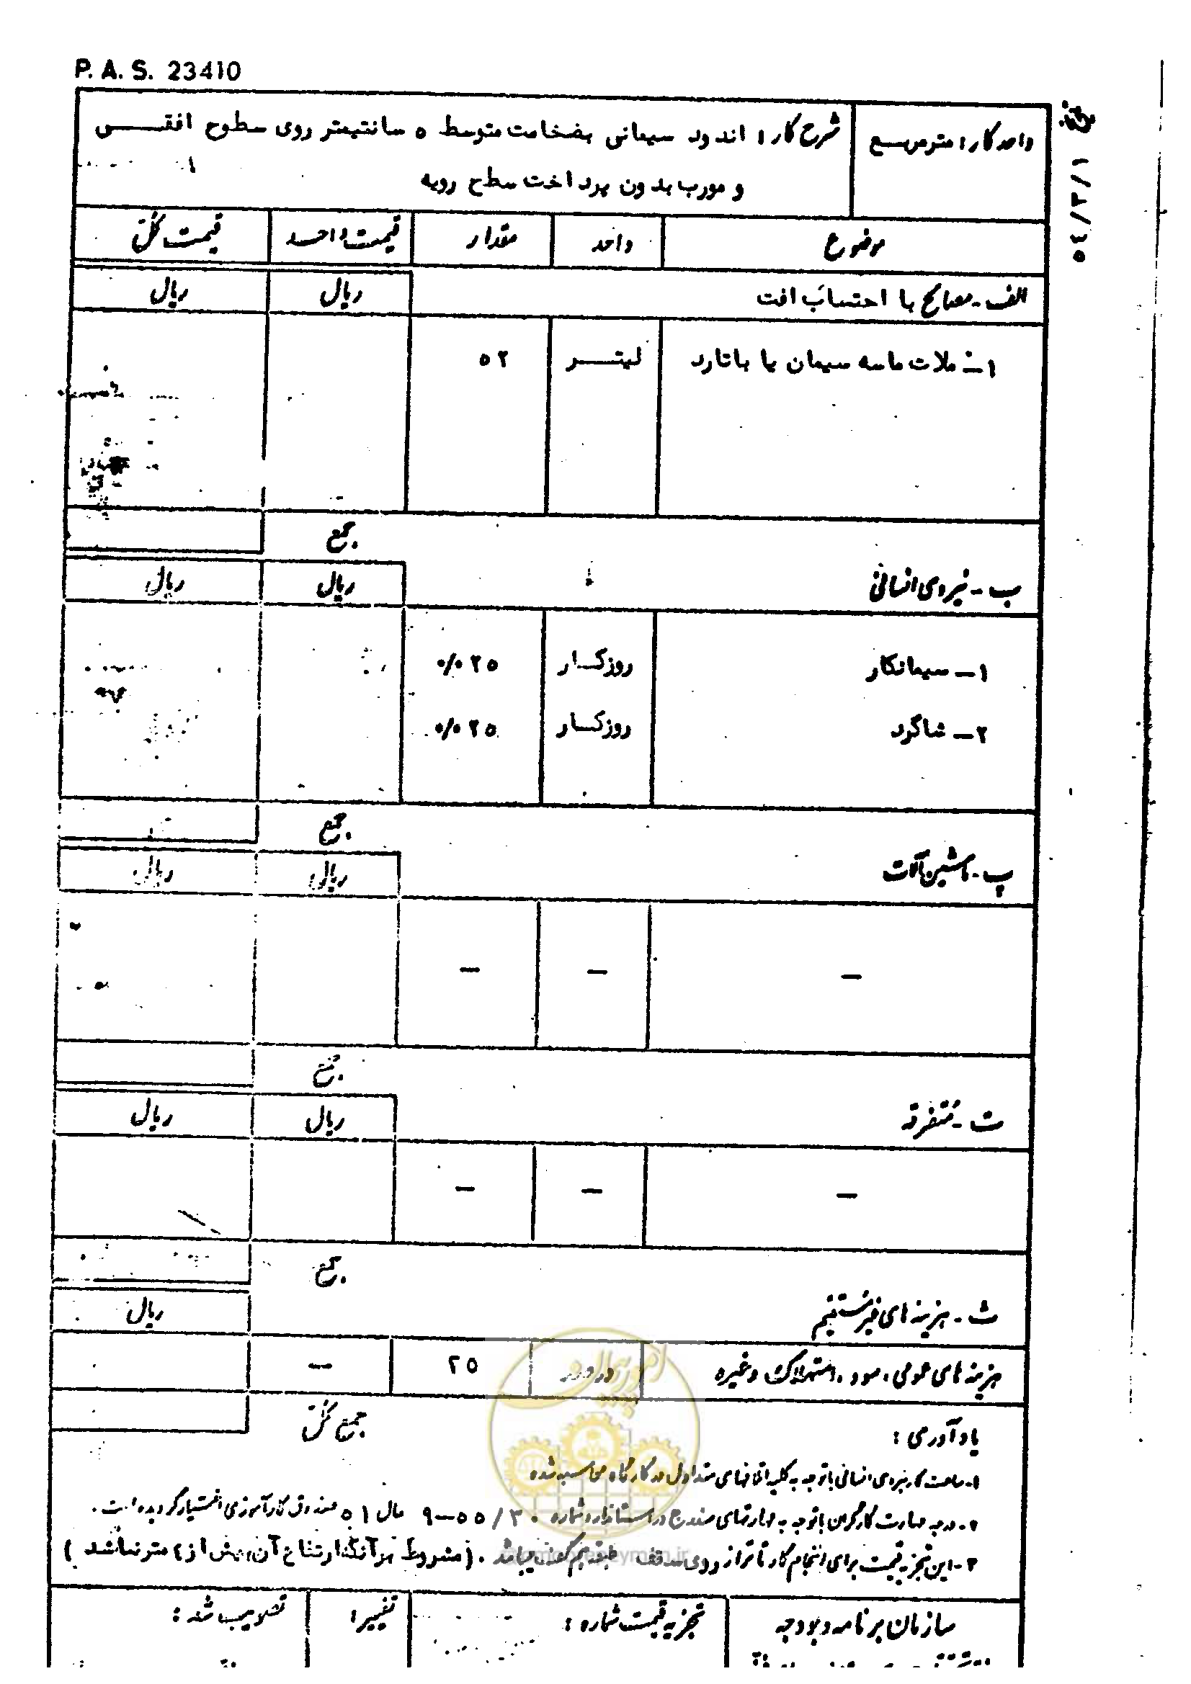 P. A. S. 23410
٥٤/٣/١
واحد کار: مترمربع
شرح کار: اندود سیمانی بضخامت متوسط ٥ سانتیمتر روی سطوح افقـــی
و مورب بدون پرداخت سطح رویه
موضوع واحد مقدار قیمت واحـد قیمت کل
الف - مصالح با احتساب افت ریال ریال
١ – ملات ماسه سیمان یا باتارد لیتـــر ٥٢
جمع
ب - نیروی انسانی ریال ریال
١ – سیمانکار روزکـار ٠/٠٢٥
٢ – شاگرد روزکـار ٠/٠٢٥
جمع
پ - ماشین آلات ریال ریال
— — —
جمع
ت - متفرقه ریال ریال
— — —
جمع
ث - هزینه های غیرمستقیم ریال
هزینه های عمومی، سود، استهلاک وغیره درصد ٢٥ —
جمع کل
یادآوری :
١- ساعت کار نیروی انسانی با توجه به کلیه اتفاقهای متداول در کارگاه محاسبه شده
٢- درجه مهارت کارگران با توجه به مهارتهای مندرج در استاندارد شماره ٩-٥٥/٣٠ سال ٥١ صندوق کارآموزی اختیار گردیده است.
٣- این تجزیه قیمت برای انجام کار تا تراز روی سقف طبقه هم کف میباشد. (مشروط بر آنکه ارتفاع آن بیش از ٤ متر نباشد)
سازمان برنامه و بودجه تجزیه قیمت شماره : تغییر: تصویب شد :
امور پیمان